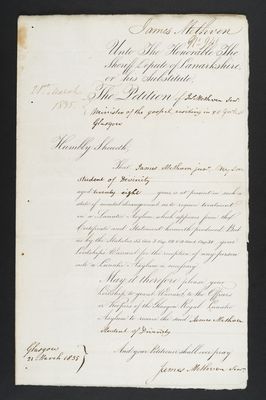 James Methven
Unto The Honorable The
Sheriff Depute of Lanarkshire,
or his Substitute,
21st March
1835.
The Petition of Ja. Methven Senr
Minister of the gospel residing in
Glasgow
Humbly Sheweth,
That James Methven junr. my Son
Student of Divinity
aged twenty eight years is at present in such a
state of mental derangement as to require treatment
in a Lunatic Asylum which appears from the
Certificate and Statement herewith produced. But
as by the Statutes
your
Lordships Warrant for the reception of any person
into a Lunatic Asylum is necessary
May it therefore please your
Lordship to grant Warrant to the Officers
or Keepers of the Glasgow Royal Lunatic
Asylum to receive the said James Methven
Student of Divinity
Glasgow
21 March 1835
And your Petitioner shall ever pray
James Methven Senr.